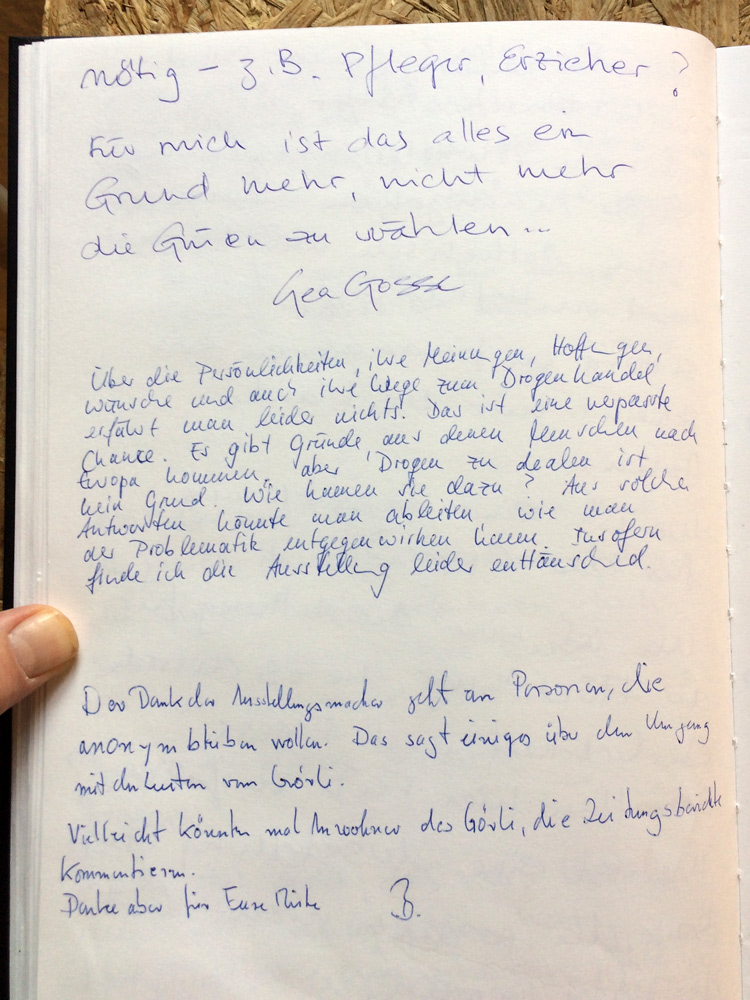 nötig – z.B. Pfleger, Erzieher?
Für mich ist das alles ein
Grund mehr, nicht mehr
die Grüen zu wählen...
Gea Gosse
Über die Persönlichkeiten, ihre Meinungen, Hoffungen,
wünsche und auch ihre Wege zum Drogenhandel
erfährt man leider nichts. Das ist eine verpasste
Chance. Es gibt Gründe, aus denen Menschen nach
Europa kommen, aber Drogen zu dealen ist
kein Grund. Wie kamen sie dazu? Aus solchen
Antworten könnte man ableiten, wie man
der Problematik entgegenwirken kann. Insofern
finde ich die Ausstellung leider enttäuschend.
Der Dank der Ausstellungsmacher geht an Personen, die
anonym bleiben wollen. Das sagt einiges über den Umgang
mit den Leuten vom Görli.
Vielleicht könnten mal Anwohner des Görli, die Zeitungsberichte
kommentieren.
Danke aber für Eure Mühe B.